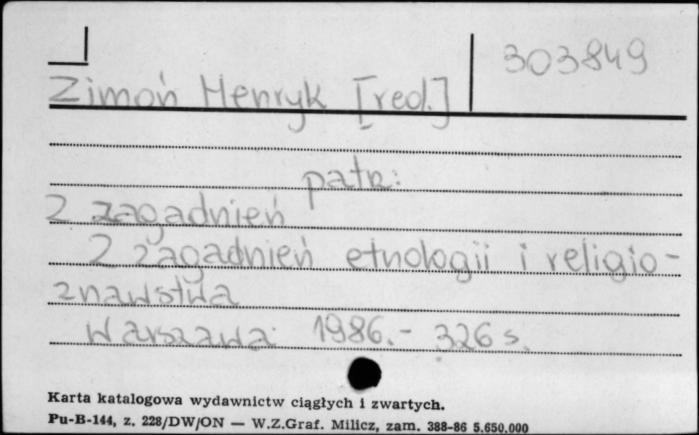 303849
Zimoń Henryk [red.]
patrz:
Z zagadnień
Z zagadnień etnologii i religio-
znawstwa
Warszawa 1986.- 326 s.
Karta katalogowa wydawnictw ciągłych i zwartych.
Pu-B-144, z. 228/DW/ON — W.Z.Graf. Milicz, zam. 388-86 5.650.000